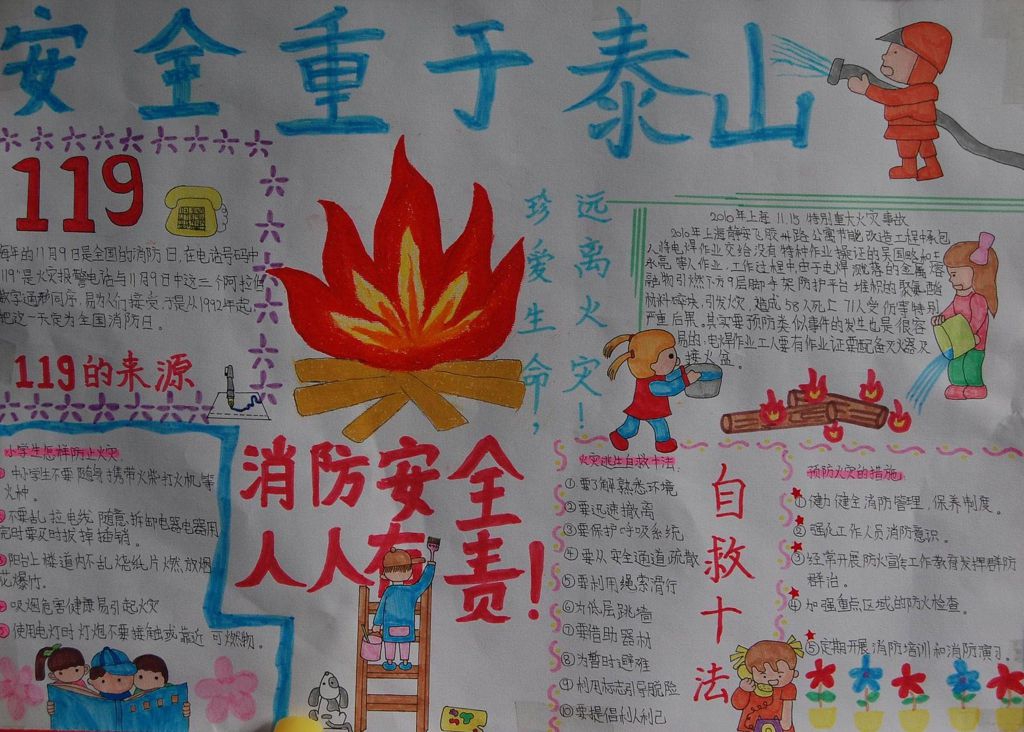 安全重于泰山
119
每年的11月9日是全国的消防日,在电话号码中
"119"是火灾报警电话与11月9日中这三个阿拉伯
数字
起,
把这一天定为全国消防日。
119的来源
珍爱生命,
远离火灾!
2010年上海11.15特别重大火灾事故
2010年上海静安飞胶州路公寓节能改造工程中承包
人将电焊作业交给没有特种作业操证的吴国略和王
永亮等人作业,工作过程中由于电焊溅落的金属溶
融物引燃下方9层脚手架防护平台堆积的聚氨酯
材料碎块,引发火,造成58人死上71人受伤等特别
严重后果。其实要预防类似事件的发生也是很容
易的:电焊作业工人要有作业证要配备灭火器及
接火盆。
小学生怎样防止火灾
中小学生不要随身携带火柴打火机等
火种。
不要乱拉电线,随意拆卸电器电器用
完时要及时拔掉插销。
阳台上楼道内不乱烧纸片燃放烟
花爆竹。
吸烟危害健康易引起火灾
使用电灯时灯炮不要接触或靠近可燃物。
消防安全
人人有责!
火灾逃生自救十法
①要了解熟悉环境
②要迅速撤离
③要保护呼吸系统
④要从安全通道疏散
⑤要利用绳索滑行
⑥为低层跳墙
⑦要借助器材
⑧为暂时避难
⑨利用标志引导脱险
⑩要提倡利人利己
自救十法
预防火灾的措施
①健力健全消防管理,保养制度。
②强化工作人员消防意识。
③经常开展防火宣传工作教育发挥群防
群治。
④加强重点区域的防火检查。
⑤定期开展消防培训和消防演习。